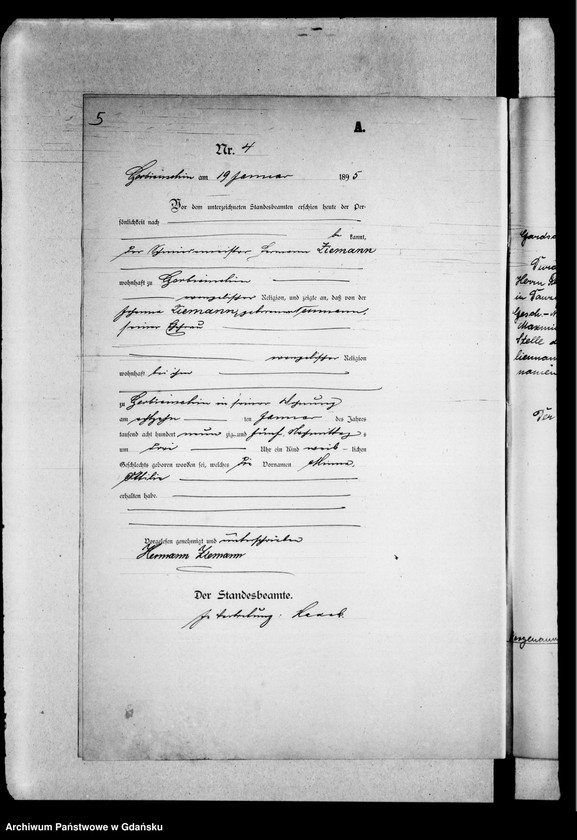 5
A.
Nr. 4
am 19 Januar 1895
Vor dem unterzeichneten Standesbeamten erschien heute der Per-
sönlichkeit nach
be kannt,
der Schneidermeister Hermann Ziemann
wohnhaft zu
evangelischer Religion, und zeigte an, daß von der
Johanna Ziemann, geborene
seiner Ehefrau
evangelischer Religion
wohnhaft bei ihm
zu in seiner Wohnung
am achtzehn ten Januar des Jahres
tausend acht hundert neun zig und fünf Nachmittag s
um drei Uhr ein Kind weib lichen
Geschlechts geboren worden sei, welches die Vornamen Minna,
Ottilie
erhalten habe.
Vorgelesen genehmigt und unterschrieben
Hermann Ziemann
Der Standesbeamte.
In Vertretung.
Herrn
in
Stelle d
namen
Der
Archiwum Państwowe w Gdańsku